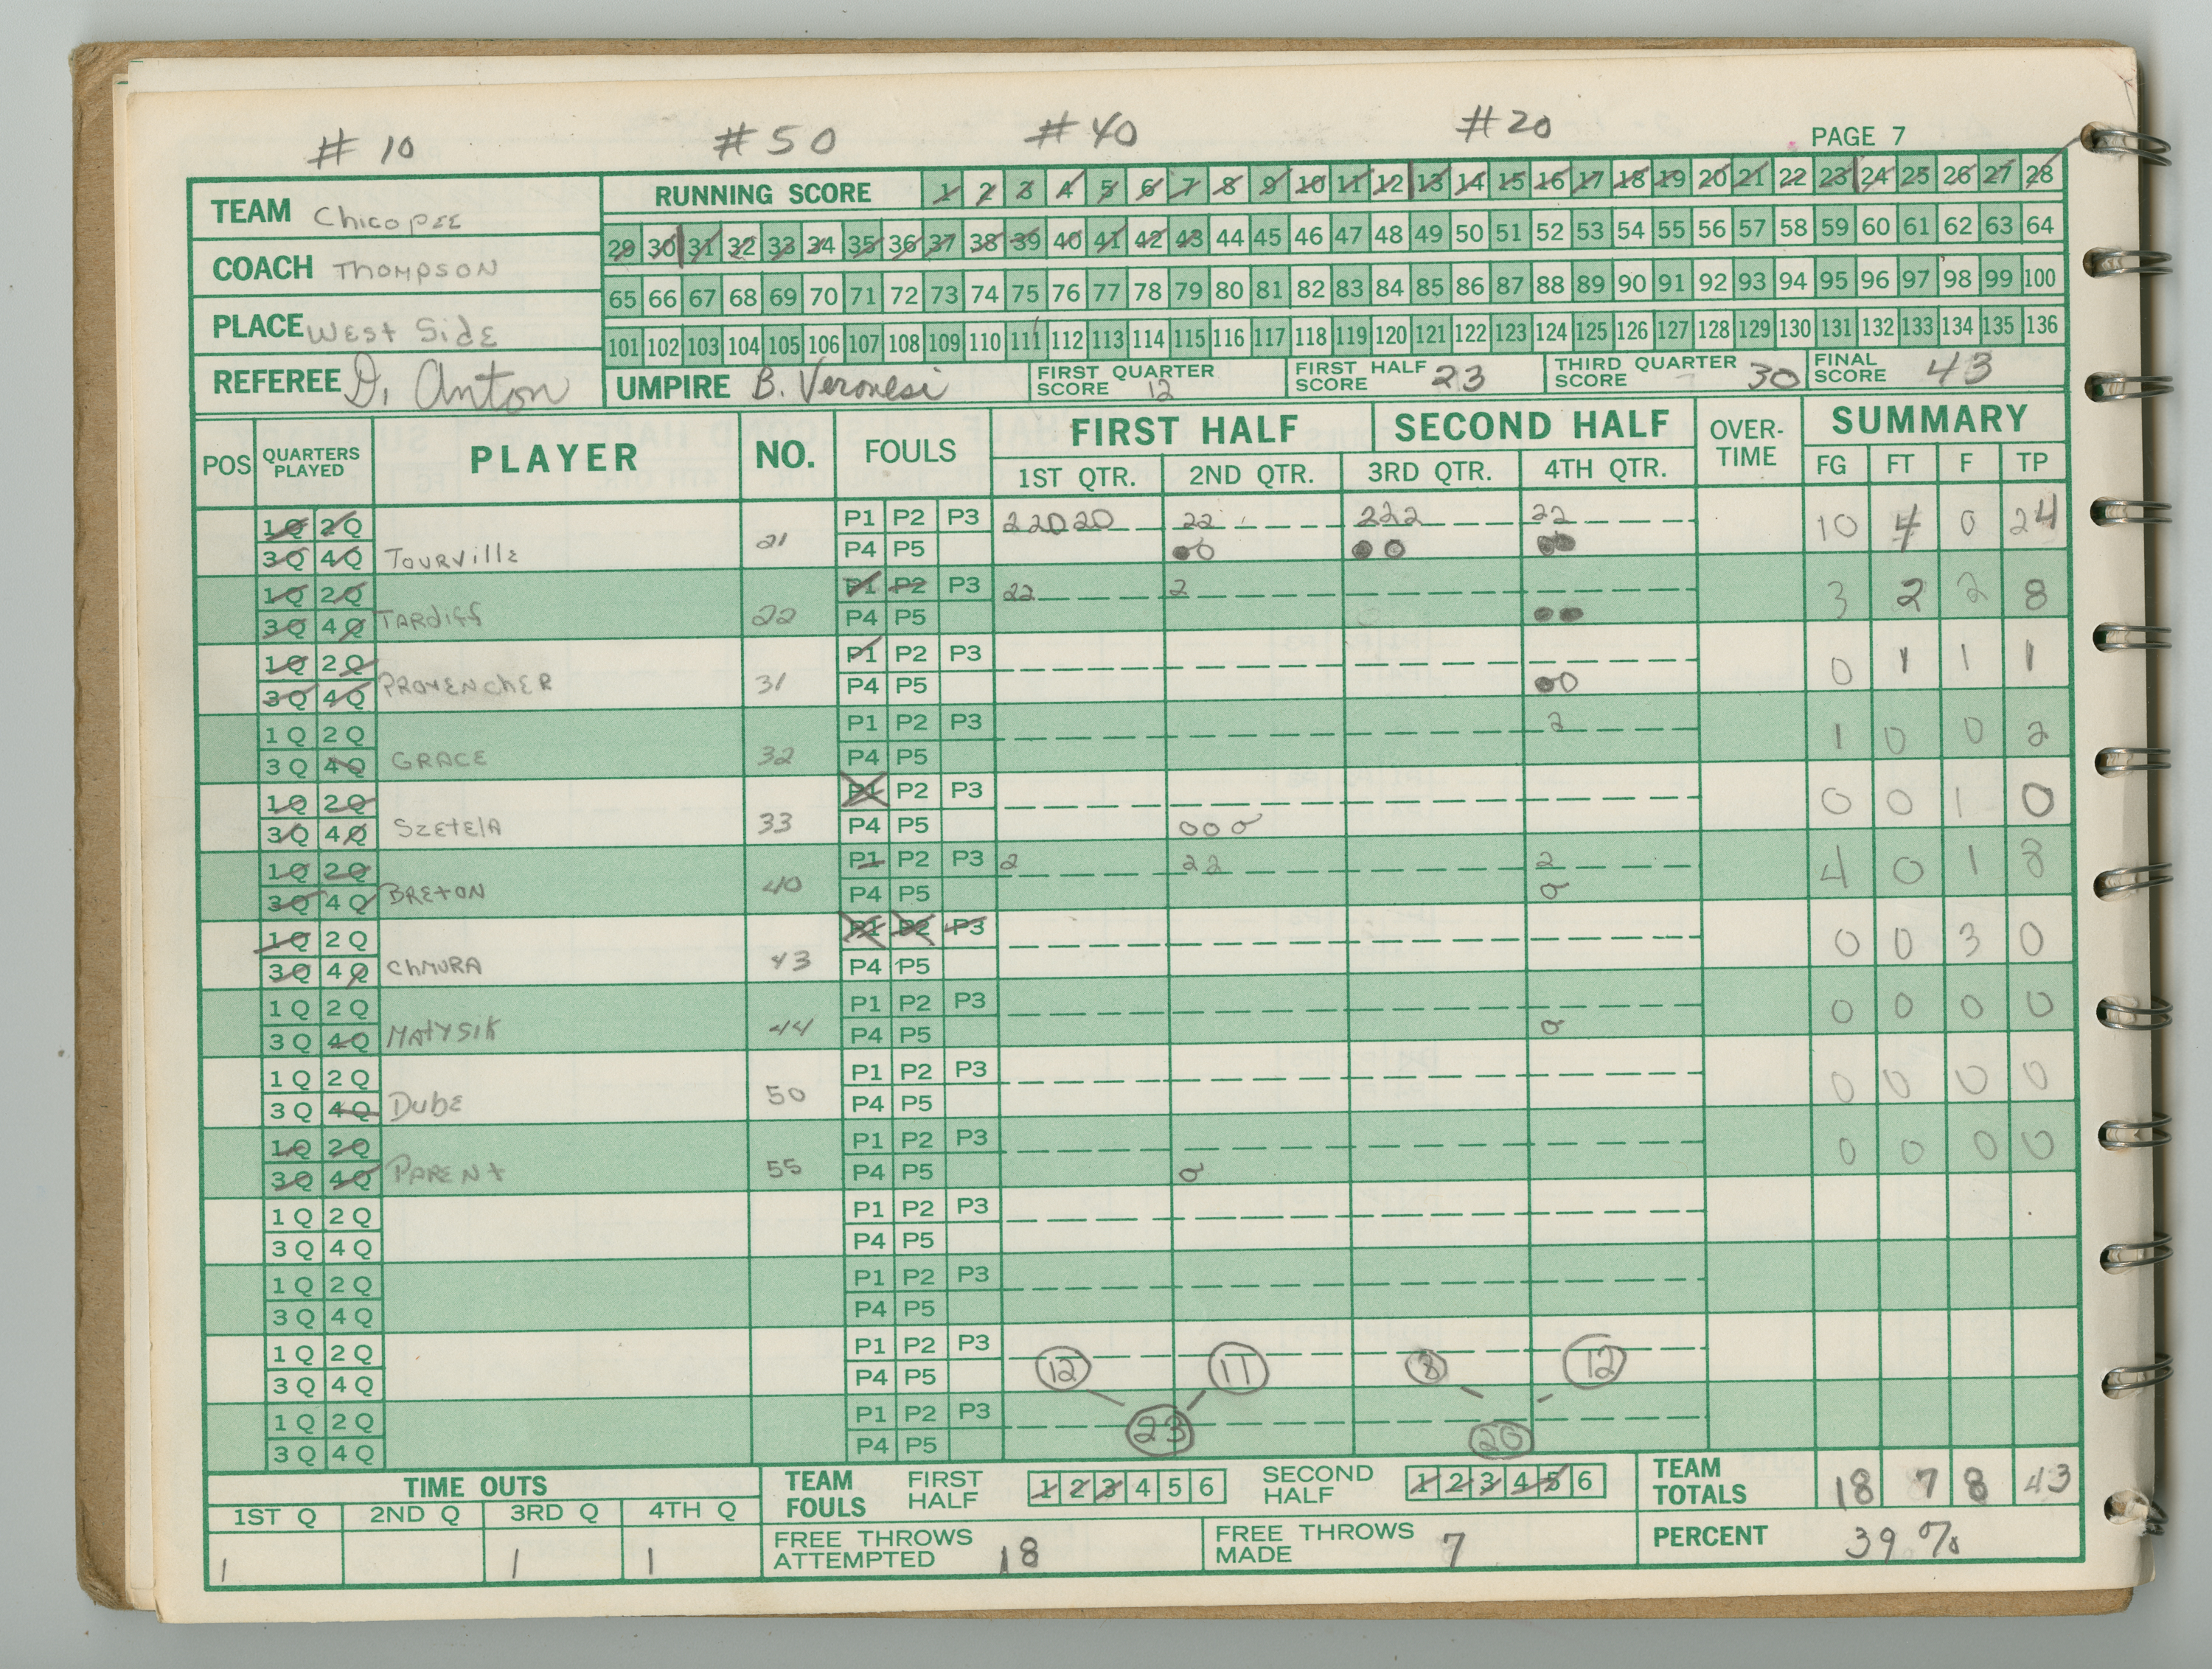 # 10 # 50 # 40 # 20
PAGE 7
TEAM Chicopee
RUNNING SCORE 1 2 3 4 5 6 7 8 9 10 11 12 13 14 15 16 17 18 19 20 21 22 23 24 25 26 27 28
29 30 31 32 33 34 35 36 37 38 39 40 41 42 43 44 45 46 47 48 49 50 51 52 53 54 55 56 57 58 59 60 61 62 63 64
COACH Thompson
65 66 67 68 69 70 71 72 73 74 75 76 77 78 79 80 81 82 83 84 85 86 87 88 89 90 91 92 93 94 95 96 97 98 99 100
PLACE West Side
101 102 103 104 105 106 107 108 109 110 111 112 113 114 115 116 117 118 119 120 121 122 123 124 125 126 127 128 129 130 131 132 133 134 135 136
REFEREE D. Anton UMPIRE B. Veronesi FIRST QUARTER SCORE 12 FIRST HALF SCORE 23 THIRD QUARTER SCORE 30 FINAL SCORE 43
POS QUARTERS PLAYED PLAYER NO. FOULS FIRST HALF SECOND HALF OVER-TIME SUMMARY
1ST QTR. 2ND QTR. 3RD QTR. 4TH QTR. FG FT F TP
1Q 2Q P1 P2 P3 22020 22 222 22 10 4 0 24
3Q 4Q Tourville 21 P4 P5
1Q 2Q P1 P2 P3 22 2 3 2 2 8
3Q 4Q Tardiff 22 P4 P5
1Q 2Q P1 P2 P3 0 1 1 1
3Q 4Q Provencher 31 P4 P5
1Q 2Q P1 P2 P3 2 1 0 0 2
3Q 4Q Grace 32 P4 P5
1Q 2Q P1 P2 P3 0 0 1 0
3Q 4Q Szetela 33 P4 P5 000
1Q 2Q P1 P2 P3 2 22 2 4 0 1 8
3Q 4Q Breton 40 P4 P5 0
1Q 2Q P1 P2 P3 0 0 3 0
3Q 4Q Chmura 43 P4 P5
1Q 2Q P1 P2 P3 0 0 0 0
3Q 4Q Matysik 44 P4 P5 0
1Q 2Q P1 P2 P3 0 0 0 0
3Q 4Q Dube 50 P4 P5
1Q 2Q P1 P2 P3 0 0 0 0
3Q 4Q Parent 55 P4 P5 0
1Q 2Q P1 P2 P3
3Q 4Q P4 P5
1Q 2Q P1 P2 P3
3Q 4Q P4 P5
1Q 2Q P1 P2 P3 12 11 8 12
3Q 4Q P4 P5
1Q 2Q P1 P2 P3 23 20
3Q 4Q P4 P5
TIME OUTS TEAM FOULS FIRST HALF 1 2 3 4 5 6 SECOND HALF 1 2 3 4 5 6 TEAM TOTALS 18 7 8 43
1ST Q 2ND Q 3RD Q 4TH Q
1 1 1 FREE THROWS ATTEMPTED 18 FREE THROWS MADE 7 PERCENT 39%